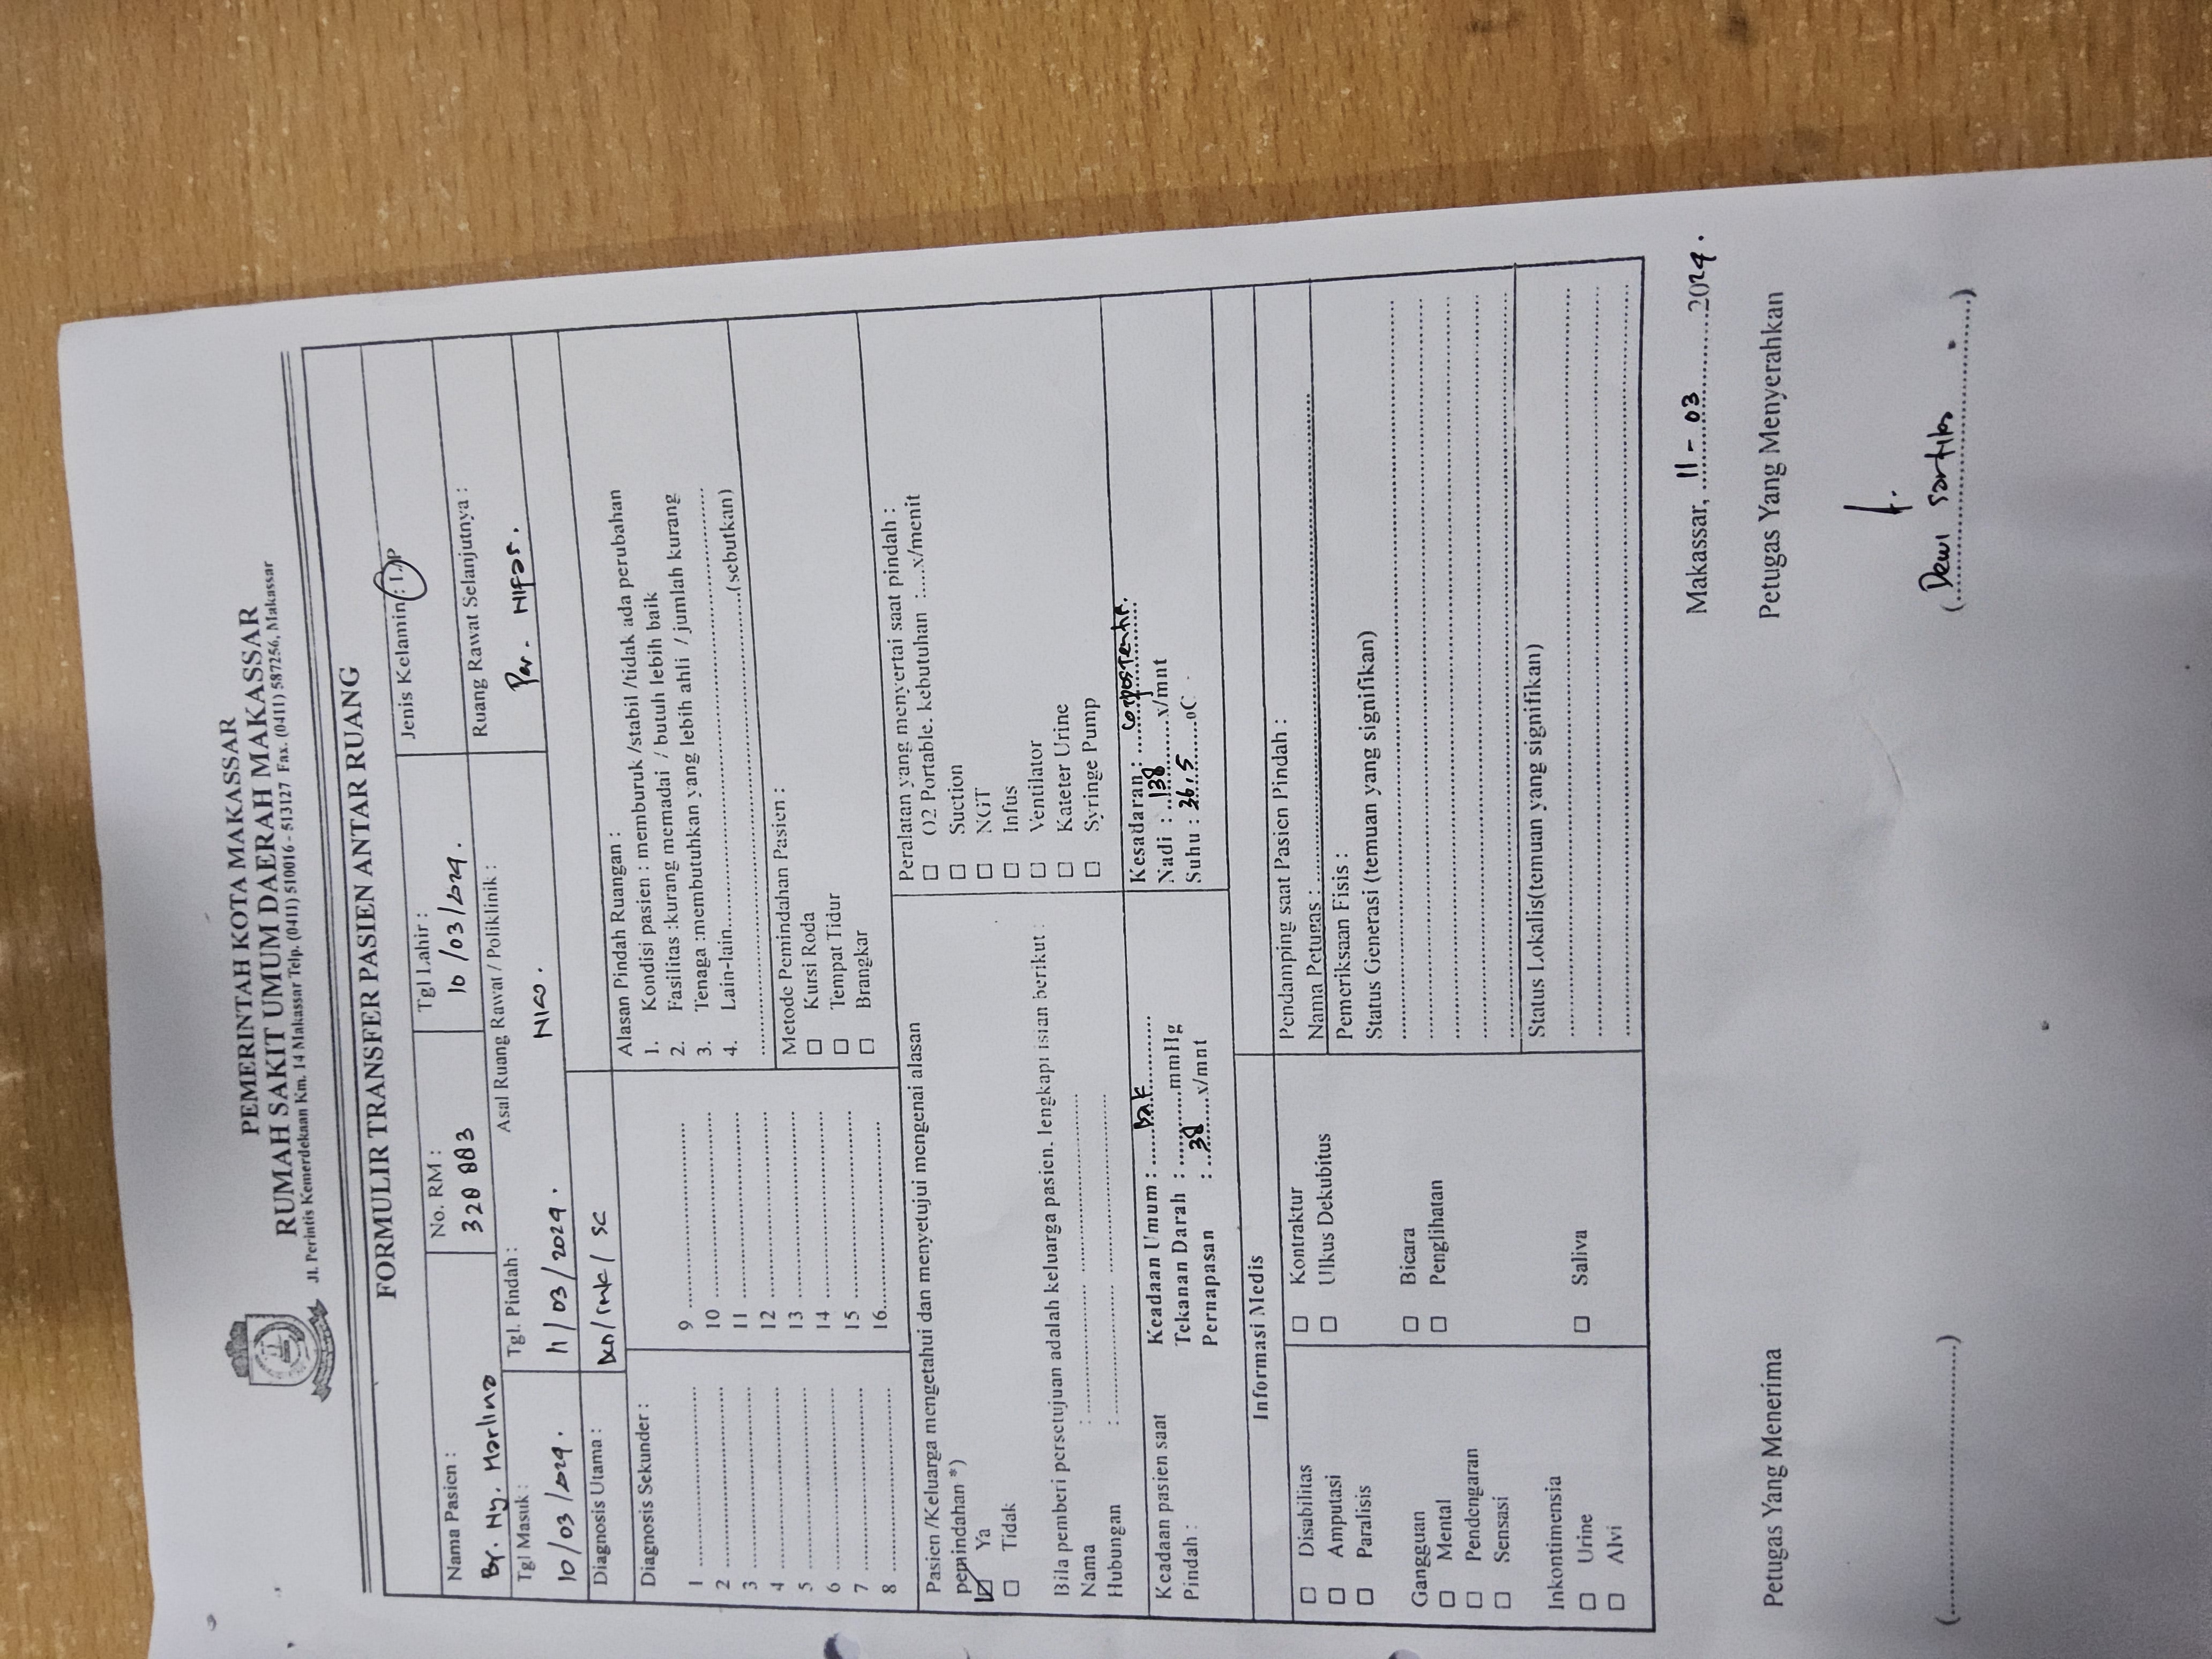 PEMERINTAH KOTA MAKASSAR
RUMAH SAKIT UMUM DAERAH MAKASSAR
Jl. Perintis Kemerdekaan Km. 14 Makassar Telp. (0411) 510016 - 513127 Fax. (0411) 587256, Makassar
FORMULIR TRANSFER PASIEN ANTAR RUANG
Nama Pasien : No. RM : Tgl Lahir : Jenis Kelamin : L/P
By. Ny. Marlina 320 883 10/03/2024.
Tgl Masuk : Tgl. Pindah : Asal Ruang Rawat / Poliklinik : Ruang Rawat Selanjutnya :
10/03/2024. 11/03/2024. NICO. Per. Nifas.
Diagnosis Utama : / SC
Diagnosis Sekunder :
1 ..........
2 ..........
3 ..........
4 ..........
5 ..........
6 ..........
7 ..........
8 ..........
9 ..........
10 ..........
11 ..........
12 ..........
13 ..........
14 ..........
15 ..........
16..........
Alasan Pindah Ruangan :
1. Kondisi pasien : memburuk /stabil /tidak ada perubahan
2. Fasilitas :kurang memadai / butuh lebih baik
3. Tenaga :membutuhkan yang lebih ahli / jumlah kurang
4. Lain-lain..........
..........(sebutkan)
Metode Pemindahan Pasien :
☐ Kursi Roda
☐ Tempat Tidur
☐ Brangkar
Pasien /Keluarga mengetahui dan menyetujui mengenai alasan
pemindahan *)
☑ Ya
☐ Tidak
Bila pemberi persetujuan adalah keluarga pasien, lengkapi isian berikut :
Nama : ..........
Hubungan : ..........
Peralatan yang menyertai saat pindah :
☐ O2 Portable, kebutuhan :.....x/menit
☐ Suction
☐ NGT
☐ Infus
☐ Ventilator
☐ Kateter Urine
☐ Syringe Pump
Keadaan pasien saat
Pindah :
Keadaan Umum : ..........
Tekanan Darah : ..........mmHg
Pernapasan : ..38....x/mnt
Kesadaran : ..........
Nadi : ..138....x/mnt
Suhu : 36,5....oC
Informasi Medis
☐ Disabilitas
☐ Amputasi
☐ Paralisis
☐ Kontraktur
☐ Ulkus Dekubitus
Gangguan
☐ Mental
☐ Pendengaran
☐ Sensasi
☐ Bicara
☐ Penglihatan
Inkontimensia
☐ Urine
☐ Alvi
☐ Saliva
Pendamping saat Pasien Pindah :
Nama Petugas : ..........
Pemeriksaan Fisis :
Status Generasi (temuan yang signifikan)
Status Lokalis(temuan yang signifikan)
Makassar, ....11 - 03........2024.
Petugas Yang Menerima Petugas Yang Menyerahkan
(..........) (Dewi Sartika)